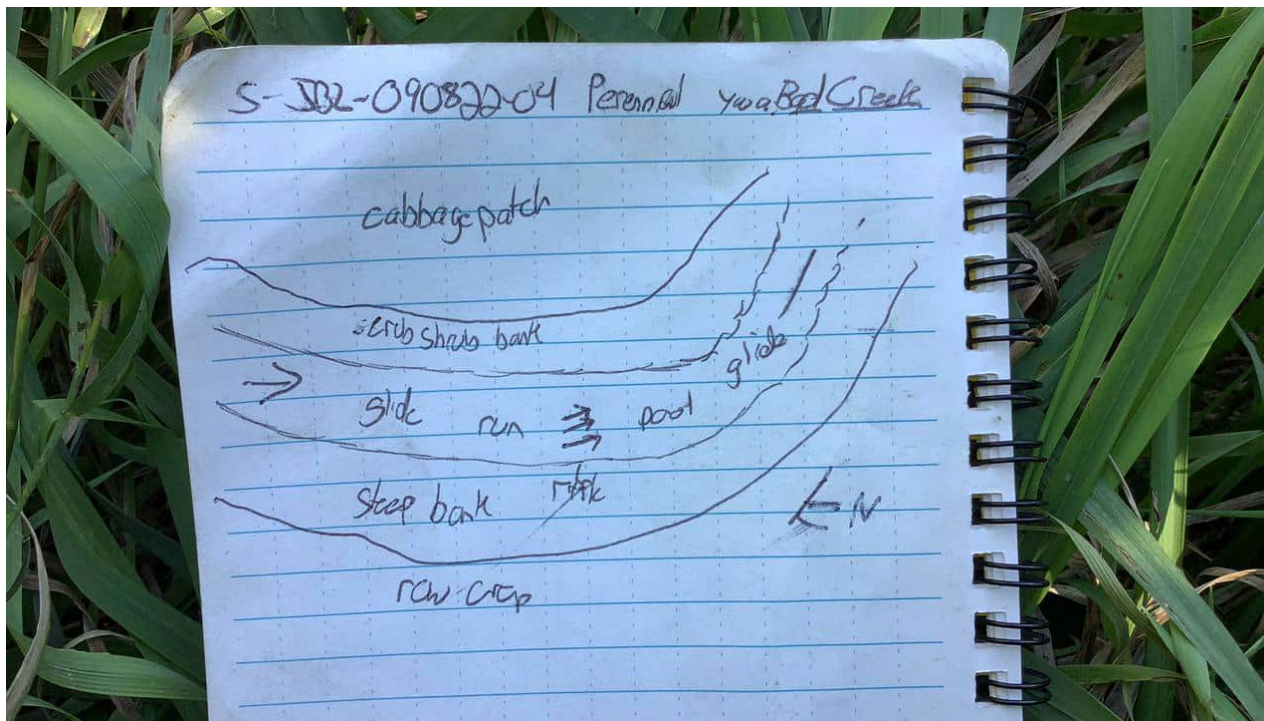 S-JBL-090822-04 Perennial Bad Creek
cabbage patch
scrub shrub bank
glide
slide run pool
steep bank riffle
row crop
N